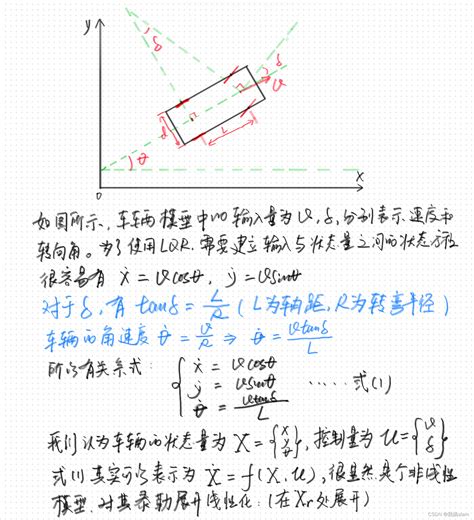 y
δ
δ
v
d
L
θ
0
x
如图所示，车辆模型中的输入量为v,δ,分别表示速度和
转向角。为了使用LQR,需要建立输入与状态量之间的状态方程
很容易有 ẋ = vcosθ, ẏ = vsinθ
对于δ,有 tanδ = L/R (L为轴距,R为转弯半径)
车辆的角速度 θ̇ = v/R ⇒ θ̇ = vtanδ/L
所以有关系式:
{ ẋ = vcosθ
ẏ = vsinθ ……式(1)
θ̇ = vtanδ/L
我们认为车辆的状态量为 X = {x y θ}, 控制量为 u = {v δ}
式(1)其实可以表示为 Ẋ = f(X, u), 很显然是个非线性
模型,对其泰勒展开线性化:(在Xr处展开)